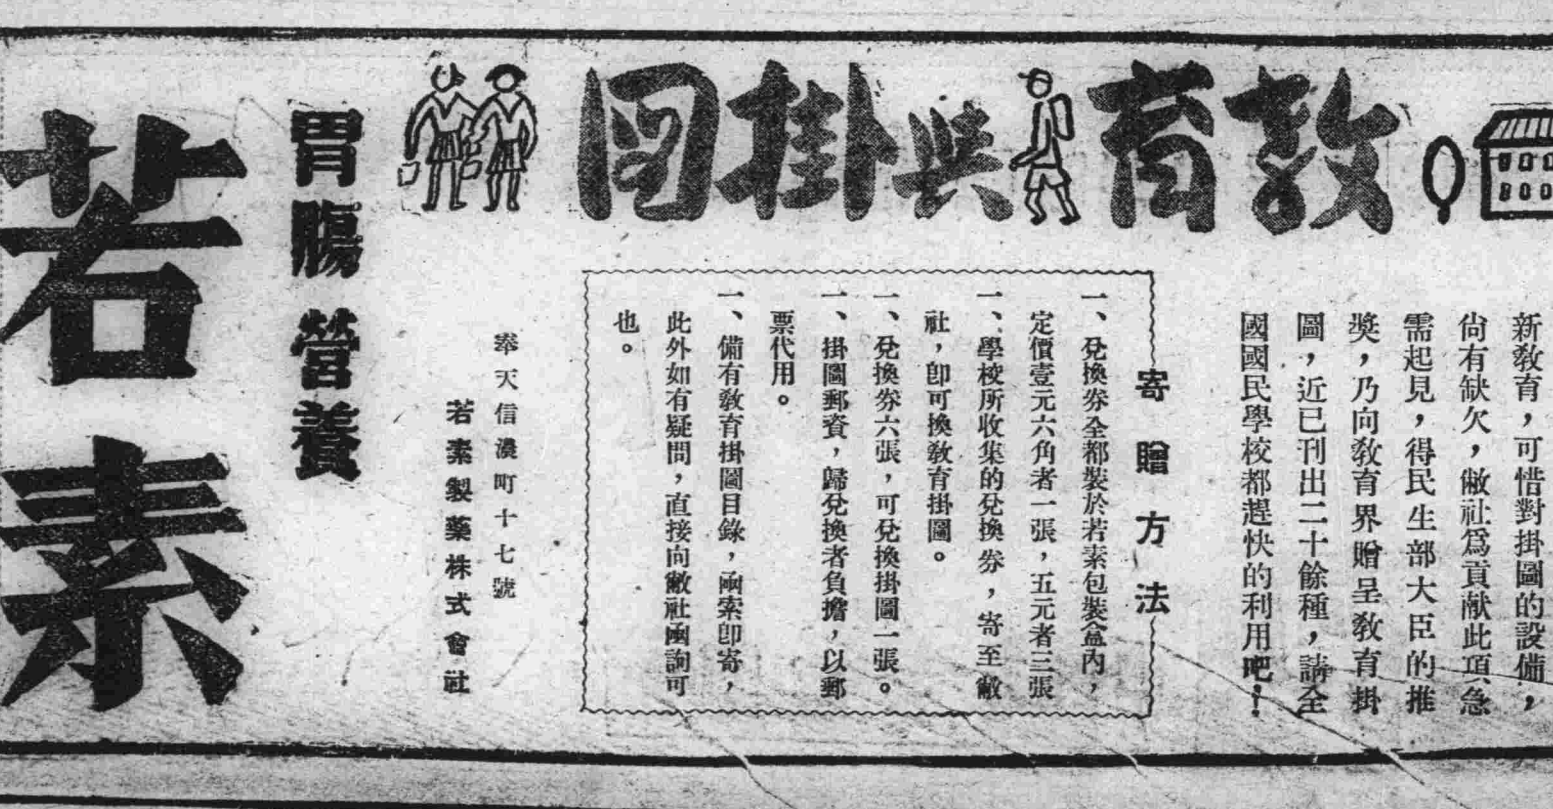 教育與掛圖
新教育，可惜對掛圖的設備，
尙有缺欠，敝社爲貢献此項急
需起見，得民生部大臣的推
奬，乃向教育界贈呈教育掛
圖，近已刊出二十餘種，請全
國國民學校都趕快的利用吧！
寄贈方法
一、兌換券全都裝於若素包裝盒內，
定價壹元六角者一張，五元者三張
一、學校所收集的兌換券，寄至敝
社，卽可換教育掛圖。
一、兌換券六張，可兌換掛圖一張。
一、掛圖郵資，歸兌換者負擔，以郵
票代用。
一、備有教育掛圖目錄，函索卽寄，
此外如有疑問，直接向敝社函詢可
也。
奉天信濃町十七號
若素製藥株式會社
胃腸營養
若素